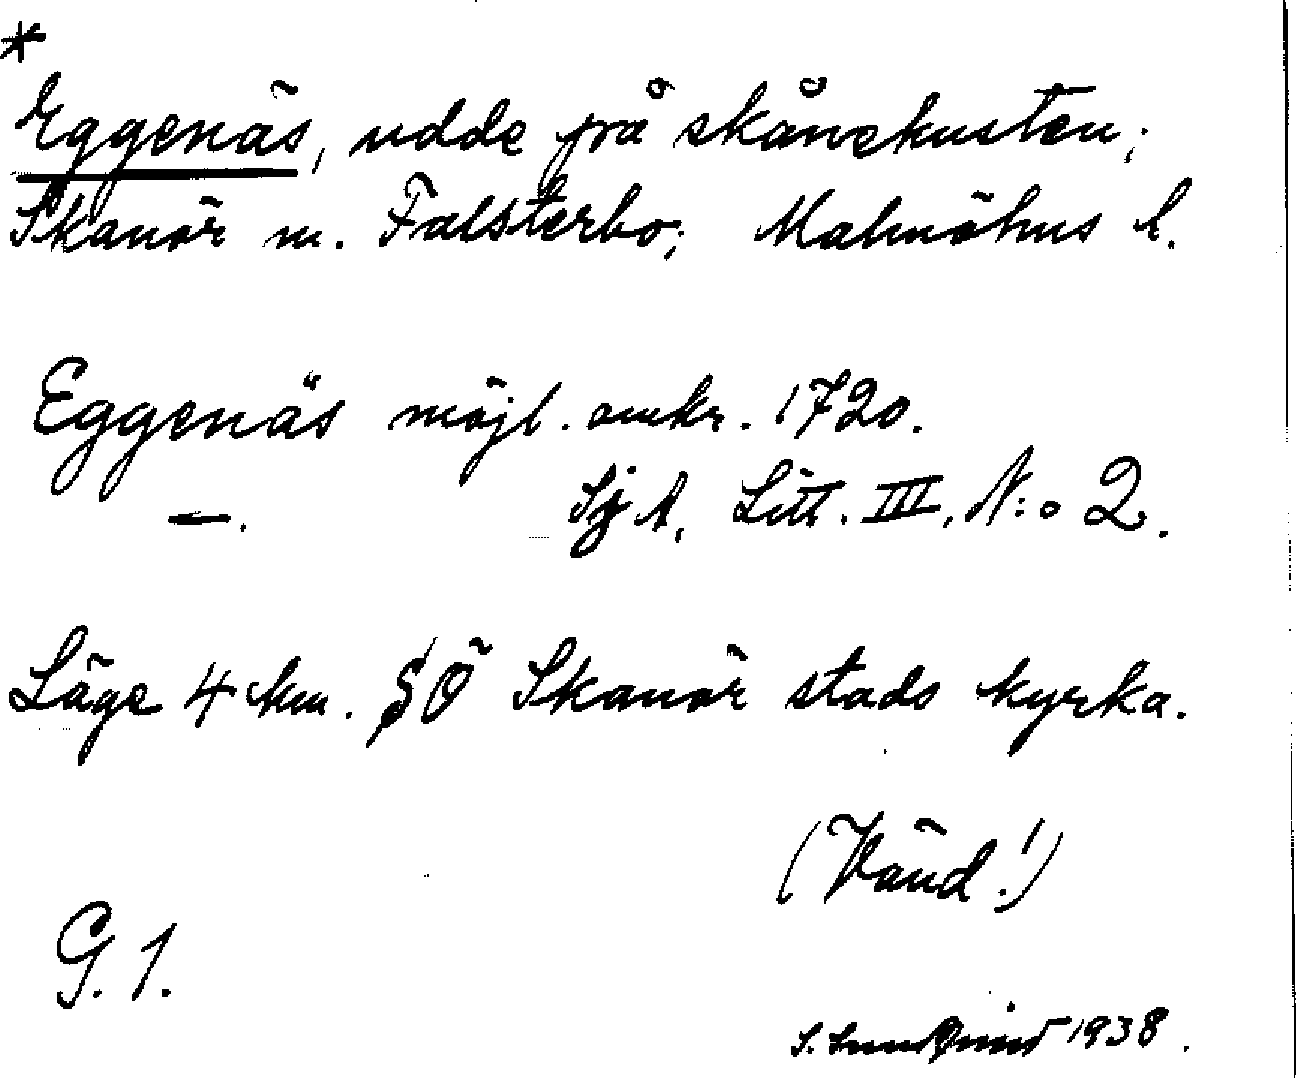 *
Eggenäs, udde på skånekusten;
Skanör m. Falsterbo; Malmöhus l.
Eggenäs möjl. omkr. 1720.
—. SjA, Litt. III, N:o 2.
Läge 4 km. SÖ Skanör stads kyrka.
(Vänd!)
G. 1.
S. Sundqvist 1938.